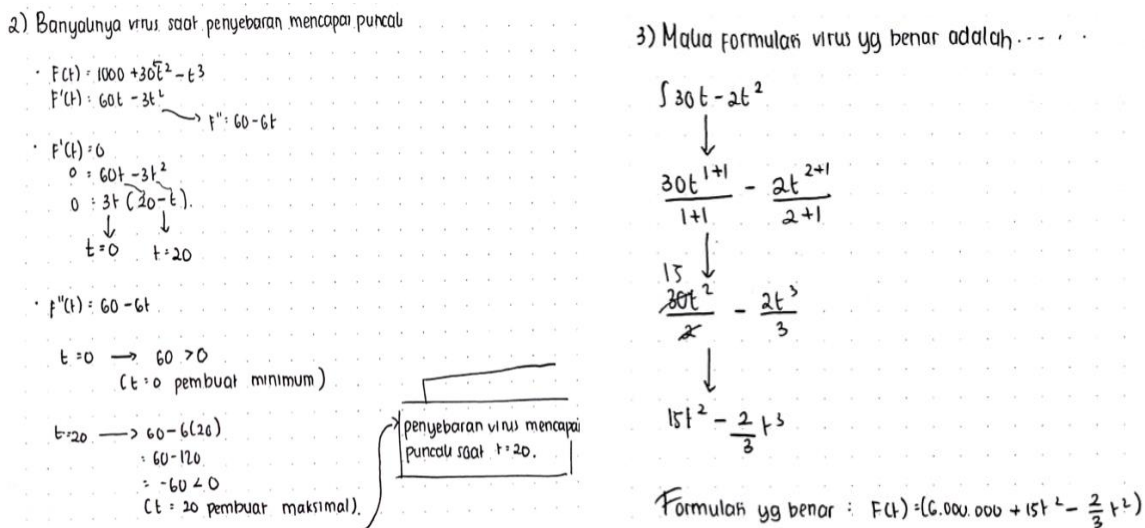 2) Banyaknya virus saat penyebaran mencapai puncak
· F(t) = 1000 + 30t² - t³
F'(t) = 60t - 3t²
→ F'' = 60 - 6t
· F'(t) = 0
0 = 60t - 3t²
0 = 3t (20 - t).
↓ ↓
t = 0 t = 20
· F''(t) = 60 - 6t
t = 0 → 60 > 0
(t = 0 pembuat minimum)
t = 20 → 60 - 6(20)
= 60 - 120
= -60 < 0
(t = 20 pembuat maksimal).
→ penyebaran virus mencapai
puncak saat t = 20.
3) Maka Formulasi virus yg benar adalah.....
∫ 30t - 2t²
↓
30t¹⁺¹/1+1 - 2t²⁺¹/2+1
↓
15
30t²/2 - 2t³/3
↓
15t² - 2/3 t³
Formulasi yg benar : F(t) = (6.000.000 + 15t² - 2/3 t²)